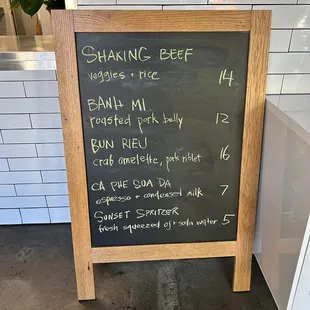 SHAKING BEEF
veggies + rice 14
BANH MI
roasted pork belly 12
BUN RIEU
crab omelette, pork riblet 16
CA PHE SUA DA
espresso + condensed milk 7
SUNSET SPRITZER
fresh squeezed oj + soda water 5